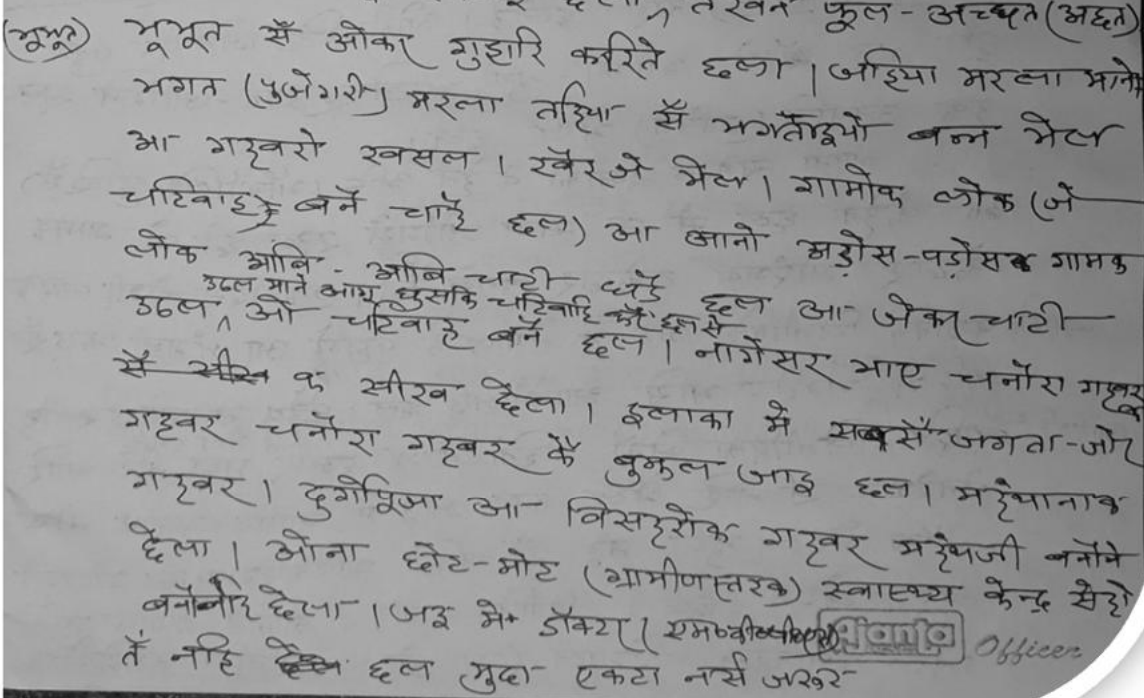 फूल - अच्छत (अछत)
(भूभूत) भूभूत सँ ओकर गुहारि करिते छला । जहिया मरला माने
भगत (पुजेगरी) मरला तहिया सँ भगताइयो बन्न भेल
आ गहवरो खसल । खैर जे भेल । गामोक लोक (जे
चटिवाह बनै चाहै छल) आ आनो अड़ोस-पड़ोसक गामक
लोक आबि - आबि चाटी धड़ै छल आ जेकर चाटी
उठल माने आयु घुसकि चटिवाहि करै छल से
उठल ओ चटिवाह बनै छल । नागेसर भाए चनौरा गहवर
सँ क सीख छेला । इलाका मे सबसँ जगता-जोर
गहवर चनौरा गहवर कै बुझल जाइ छल । महंथानाक
गहवर । दुर्गापूजा आ विसहरोक गहवर महंथजी बनौने
छेला । ओना छोट-मोट (ग्रामीणस्तरक) स्वास्थ्य केन्द्र सेहो
बनौनहि छेला । जइ मे डॉक्टर (एम०बी०बी०एस)
तँ नहि छल मुदा एकटा नर्स जरूर
Ajanta Officer